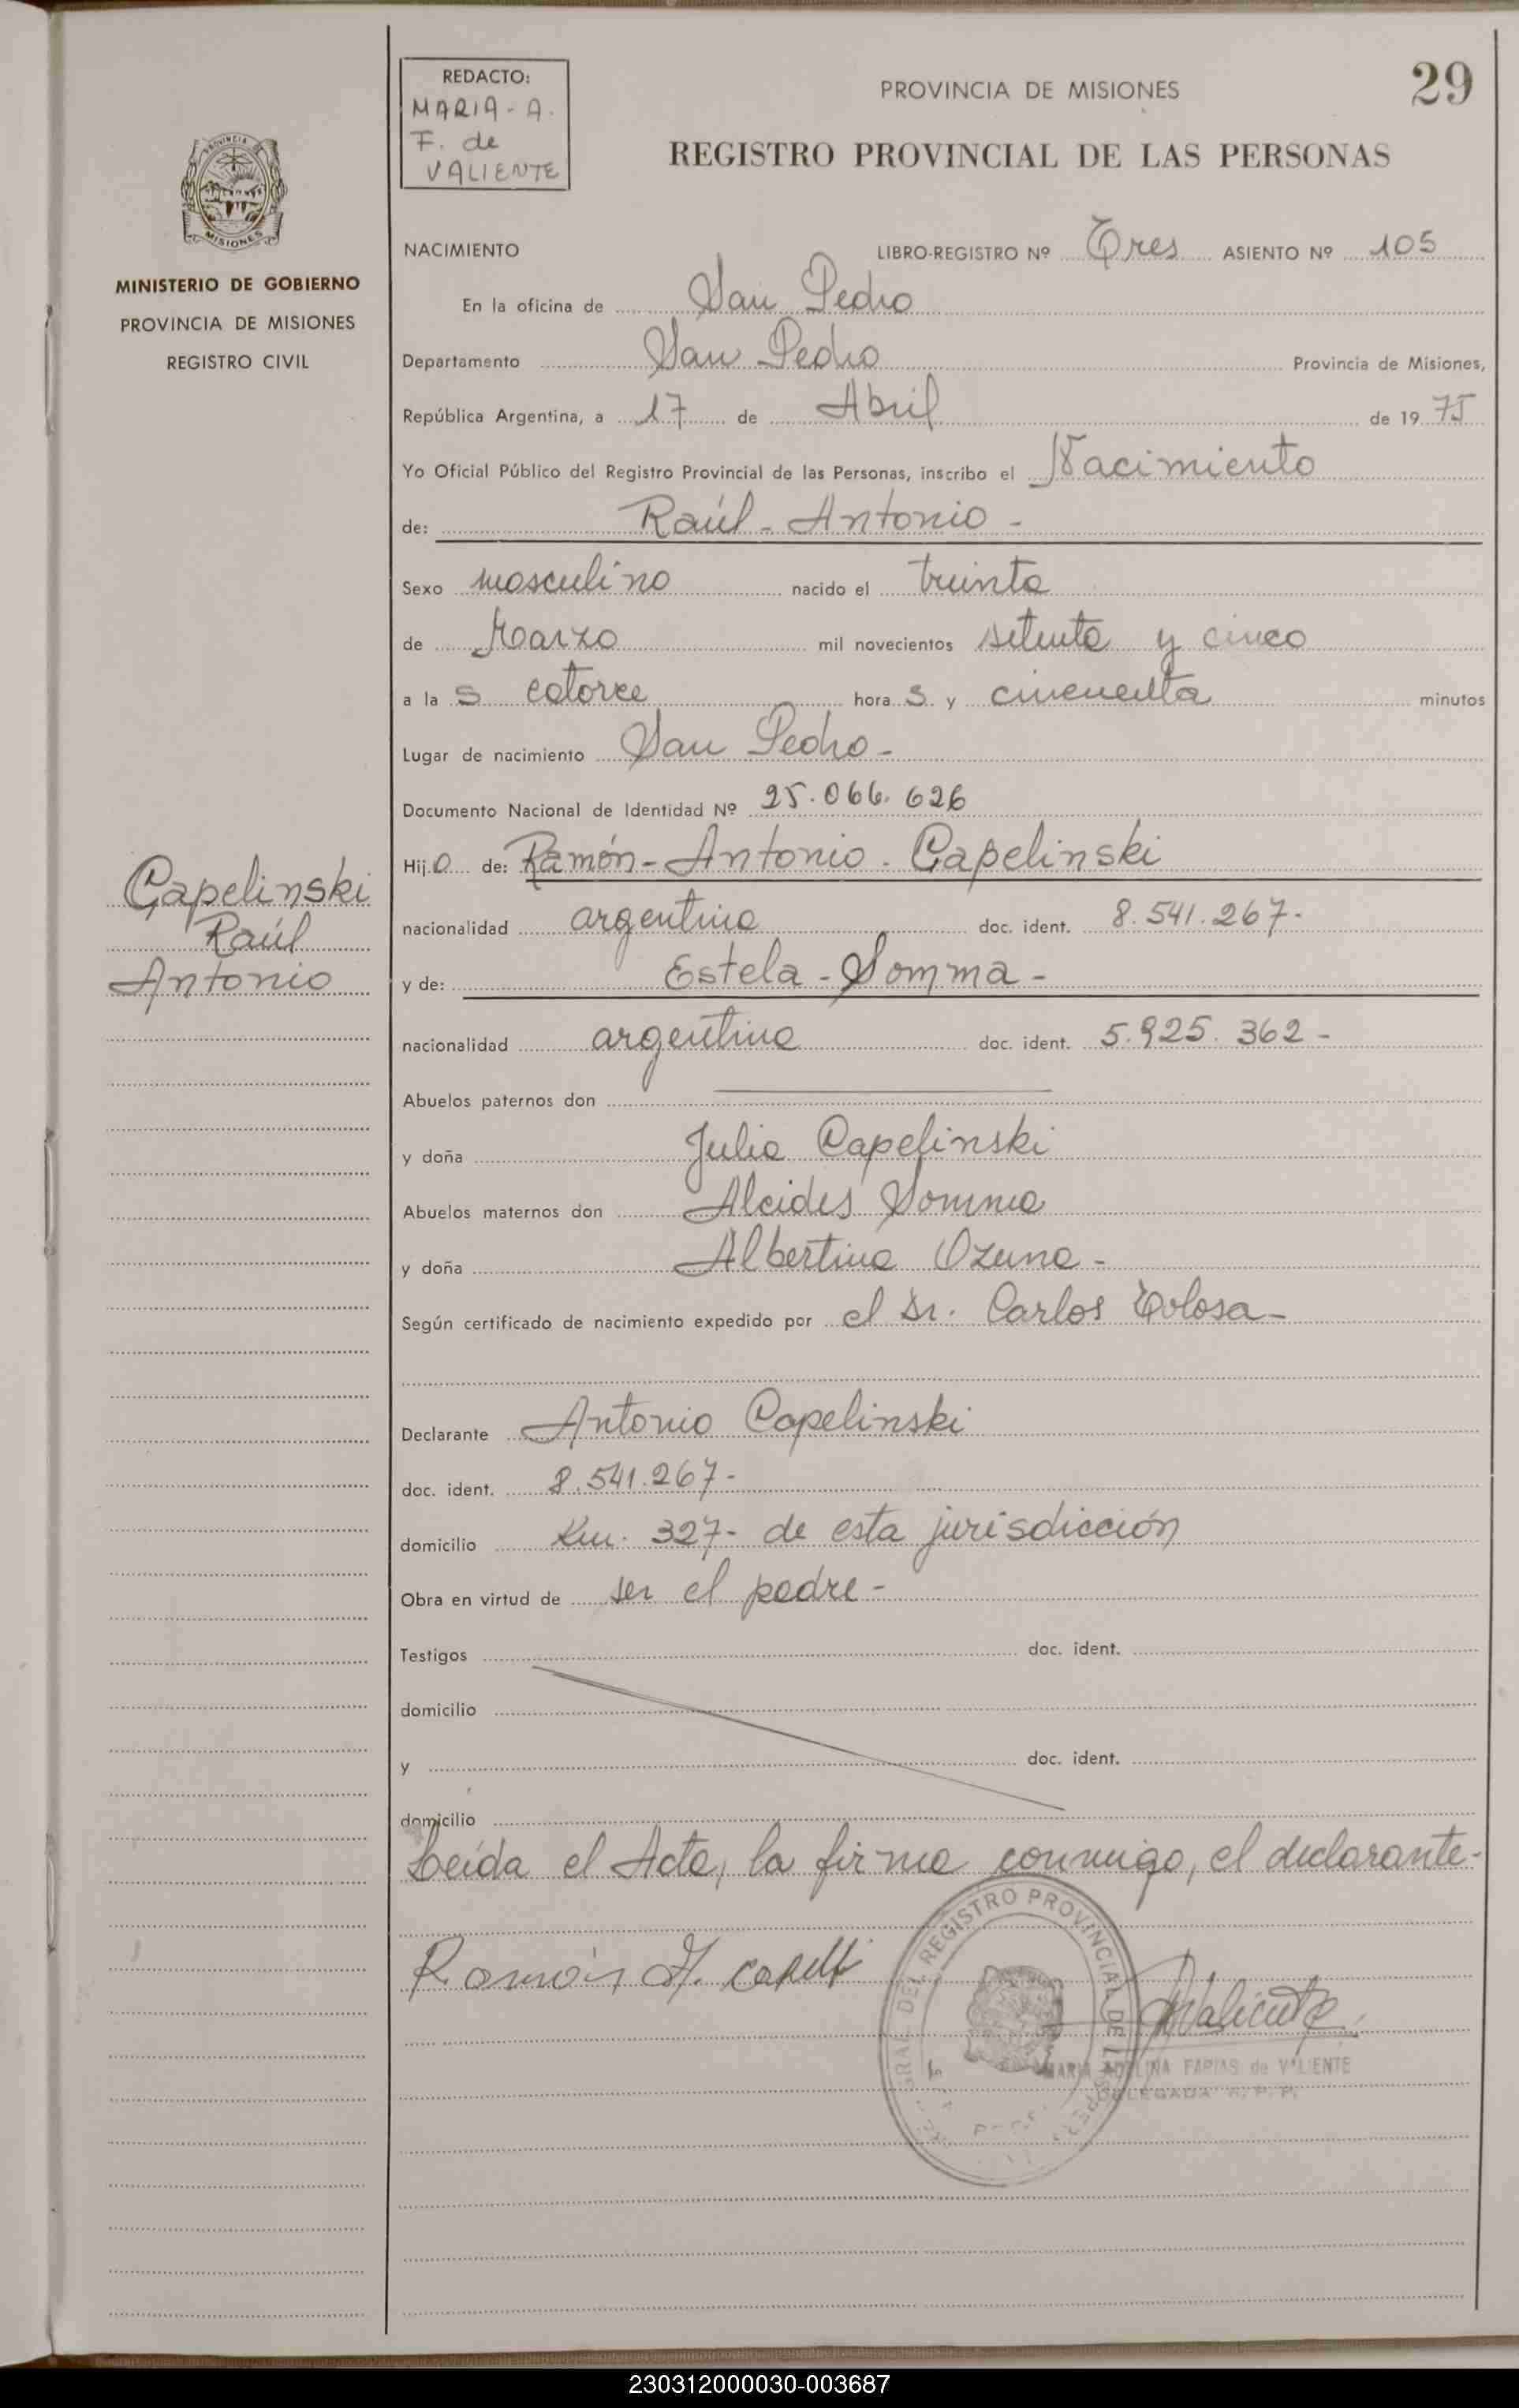 29
REDACTO:
MARIA-A.
F. de
VALIENTE
PROVINCIA DE MISIONES
REGISTRO PROVINCIAL DE LAS PERSONAS
PROVINCIA DE
MISIONES
MINISTERIO DE GOBIERNO
PROVINCIA DE MISIONES
REGISTRO CIVIL
NACIMIENTO LIBRO-REGISTRO Nº Tres ASIENTO Nº 105
En la oficina de San Pedro
Departamento San Pedro Provincia de Misiones,
República Argentina, a 17 de Abril de 1975
Yo Oficial Público del Registro Provincial de las Personas, inscribo el Nacimiento
de: Raúl - Antonio -
Sexo masculino nacido el treinta
de Marzo mil novecientos setenta y cinco
a la s catorce hora s y cincuenta minutos
Lugar de nacimiento San Pedro -
Documento Nacional de Identidad Nº 25.066.626
Hijo de: Ramón - Antonio - Capelinski
Capelinski
Raúl
Antonio
nacionalidad argentina doc. ident. 8.541.267-
y de: Estela - Somma -
nacionalidad argentina doc. ident. 5.925.362 -
Abuelos paternos don
y doña Julia Capelinski
Abuelos maternos don Alcides Somma
y doña Albertina Ozuna -
Según certificado de nacimiento expedido por el Dr. Carlos Tolosa -
Declarante Antonio Capelinski
doc. ident. 8.541.267-
domicilio Km. 327- de esta jurisdicción
Obra en virtud de ser el padre -
Testigos doc. ident.
domicilio
y doc. ident.
domicilio
Leída el Acta, la firma conmigo, el declarante-
Ramón A. Capelli
Valiente
REGISTRO PROVINCIAL DE LAS
MARIA ADELINA FARIAS de VALIENTE
DELEGADA R. P. P.
230312000030-003687